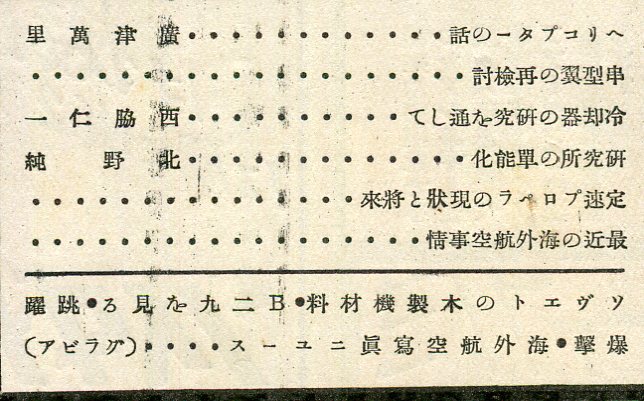 ヘリコプターの話・・・・・・・・・・・・・廣津萬里
串型翼の再檢討・・・・・・・・・・・・・・・・・・・
冷却器の硏究を通して・・・・・・・・・・・西脇仁一
硏究所の單能化・・・・・・・・・・・・・北野純
定速プロペラの現狀と將來・・・・・・・・・・・・・・
最近の海外航空事情・・・・・・・・・・・・・・・・・
ソヴエトの木製機材料●B二九を見る●跳躍
爆擊●海外航空寫眞ニユース・・・・(グラビア)